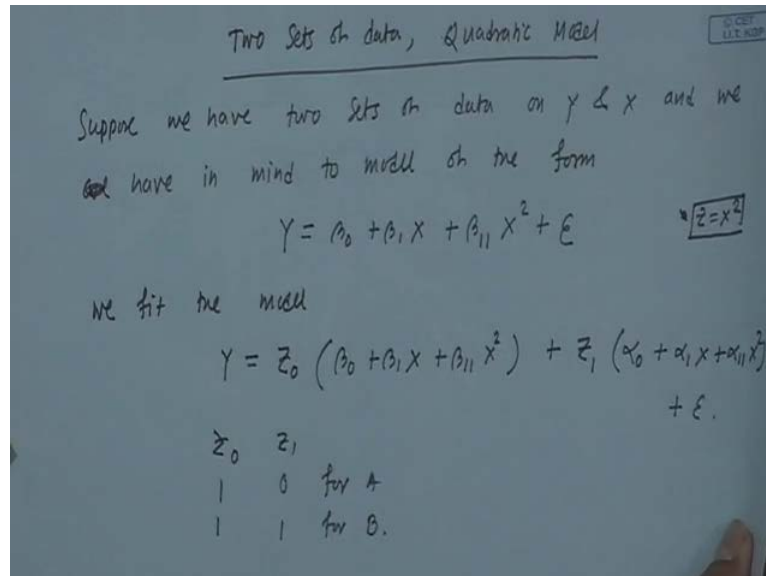 Two Sets of data, Quadratic Model
© CET
I.I.T. KGP
Suppose we have two sets of data on Y & X and we
have in mind to model of the form
Y = β₀ + β₁ X + β₁₁ X² + ε
Z = X²
We fit the model
Y = Z₀ (β₀ + β₁ X + β₁₁ X²) + Z₁ (α₀ + α₁ X + α₁₁ X²)
+ ε.
Z₀ Z₁
1 0 for A
1 1 for B.